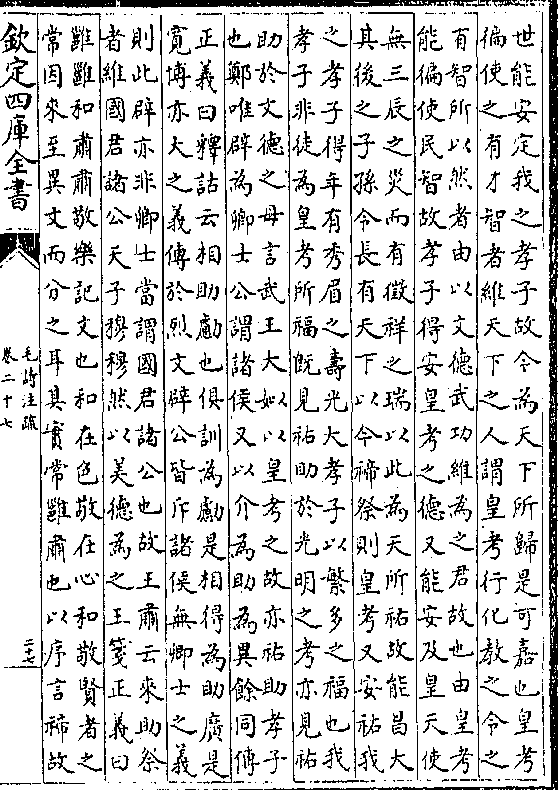 世能安定我之孝子故令為天下所歸是可嘉也皇考
徧使之有才智者維天下之人謂皇考行化教之令之
有智所以然者由以文德武功維為之君故也由皇考
能徧使民智故孝子得安皇考之德又能安及皇天使
無三辰之災而有徴祥之瑞以此為天所祐故能昌大
其後之子孫令長有天下以今禘祭則皇考又安祐我
之孝子得年有秀眉之壽光大孝子以繁多之福也我
孝子非徒為皇考所福既見祐助於光明之考亦見祐
助於文德之母言武王大姒以皇考之故亦祐助孝子
也鄭唯辟為卿士公謂諸侯又以介為助為異餘同傳
正義曰釋詁云相助勴也俱訓為勴是相得為助廣是
寛博亦大之義傳於烈文辟公皆斥諸侯無卿士之義
則此辟亦非卿士當謂國君諸公也故王肅云來助祭
者維國君諸公天子穆穆然以美德為之王箋正義曰
雝雝和肅肅敬樂記文也和在色敬在心和敬賢者之
常因來至異文而分之耳其實常雝肅也以序言禘故
欽定四庫全書
毛詩注疏
卷二十七
二十七